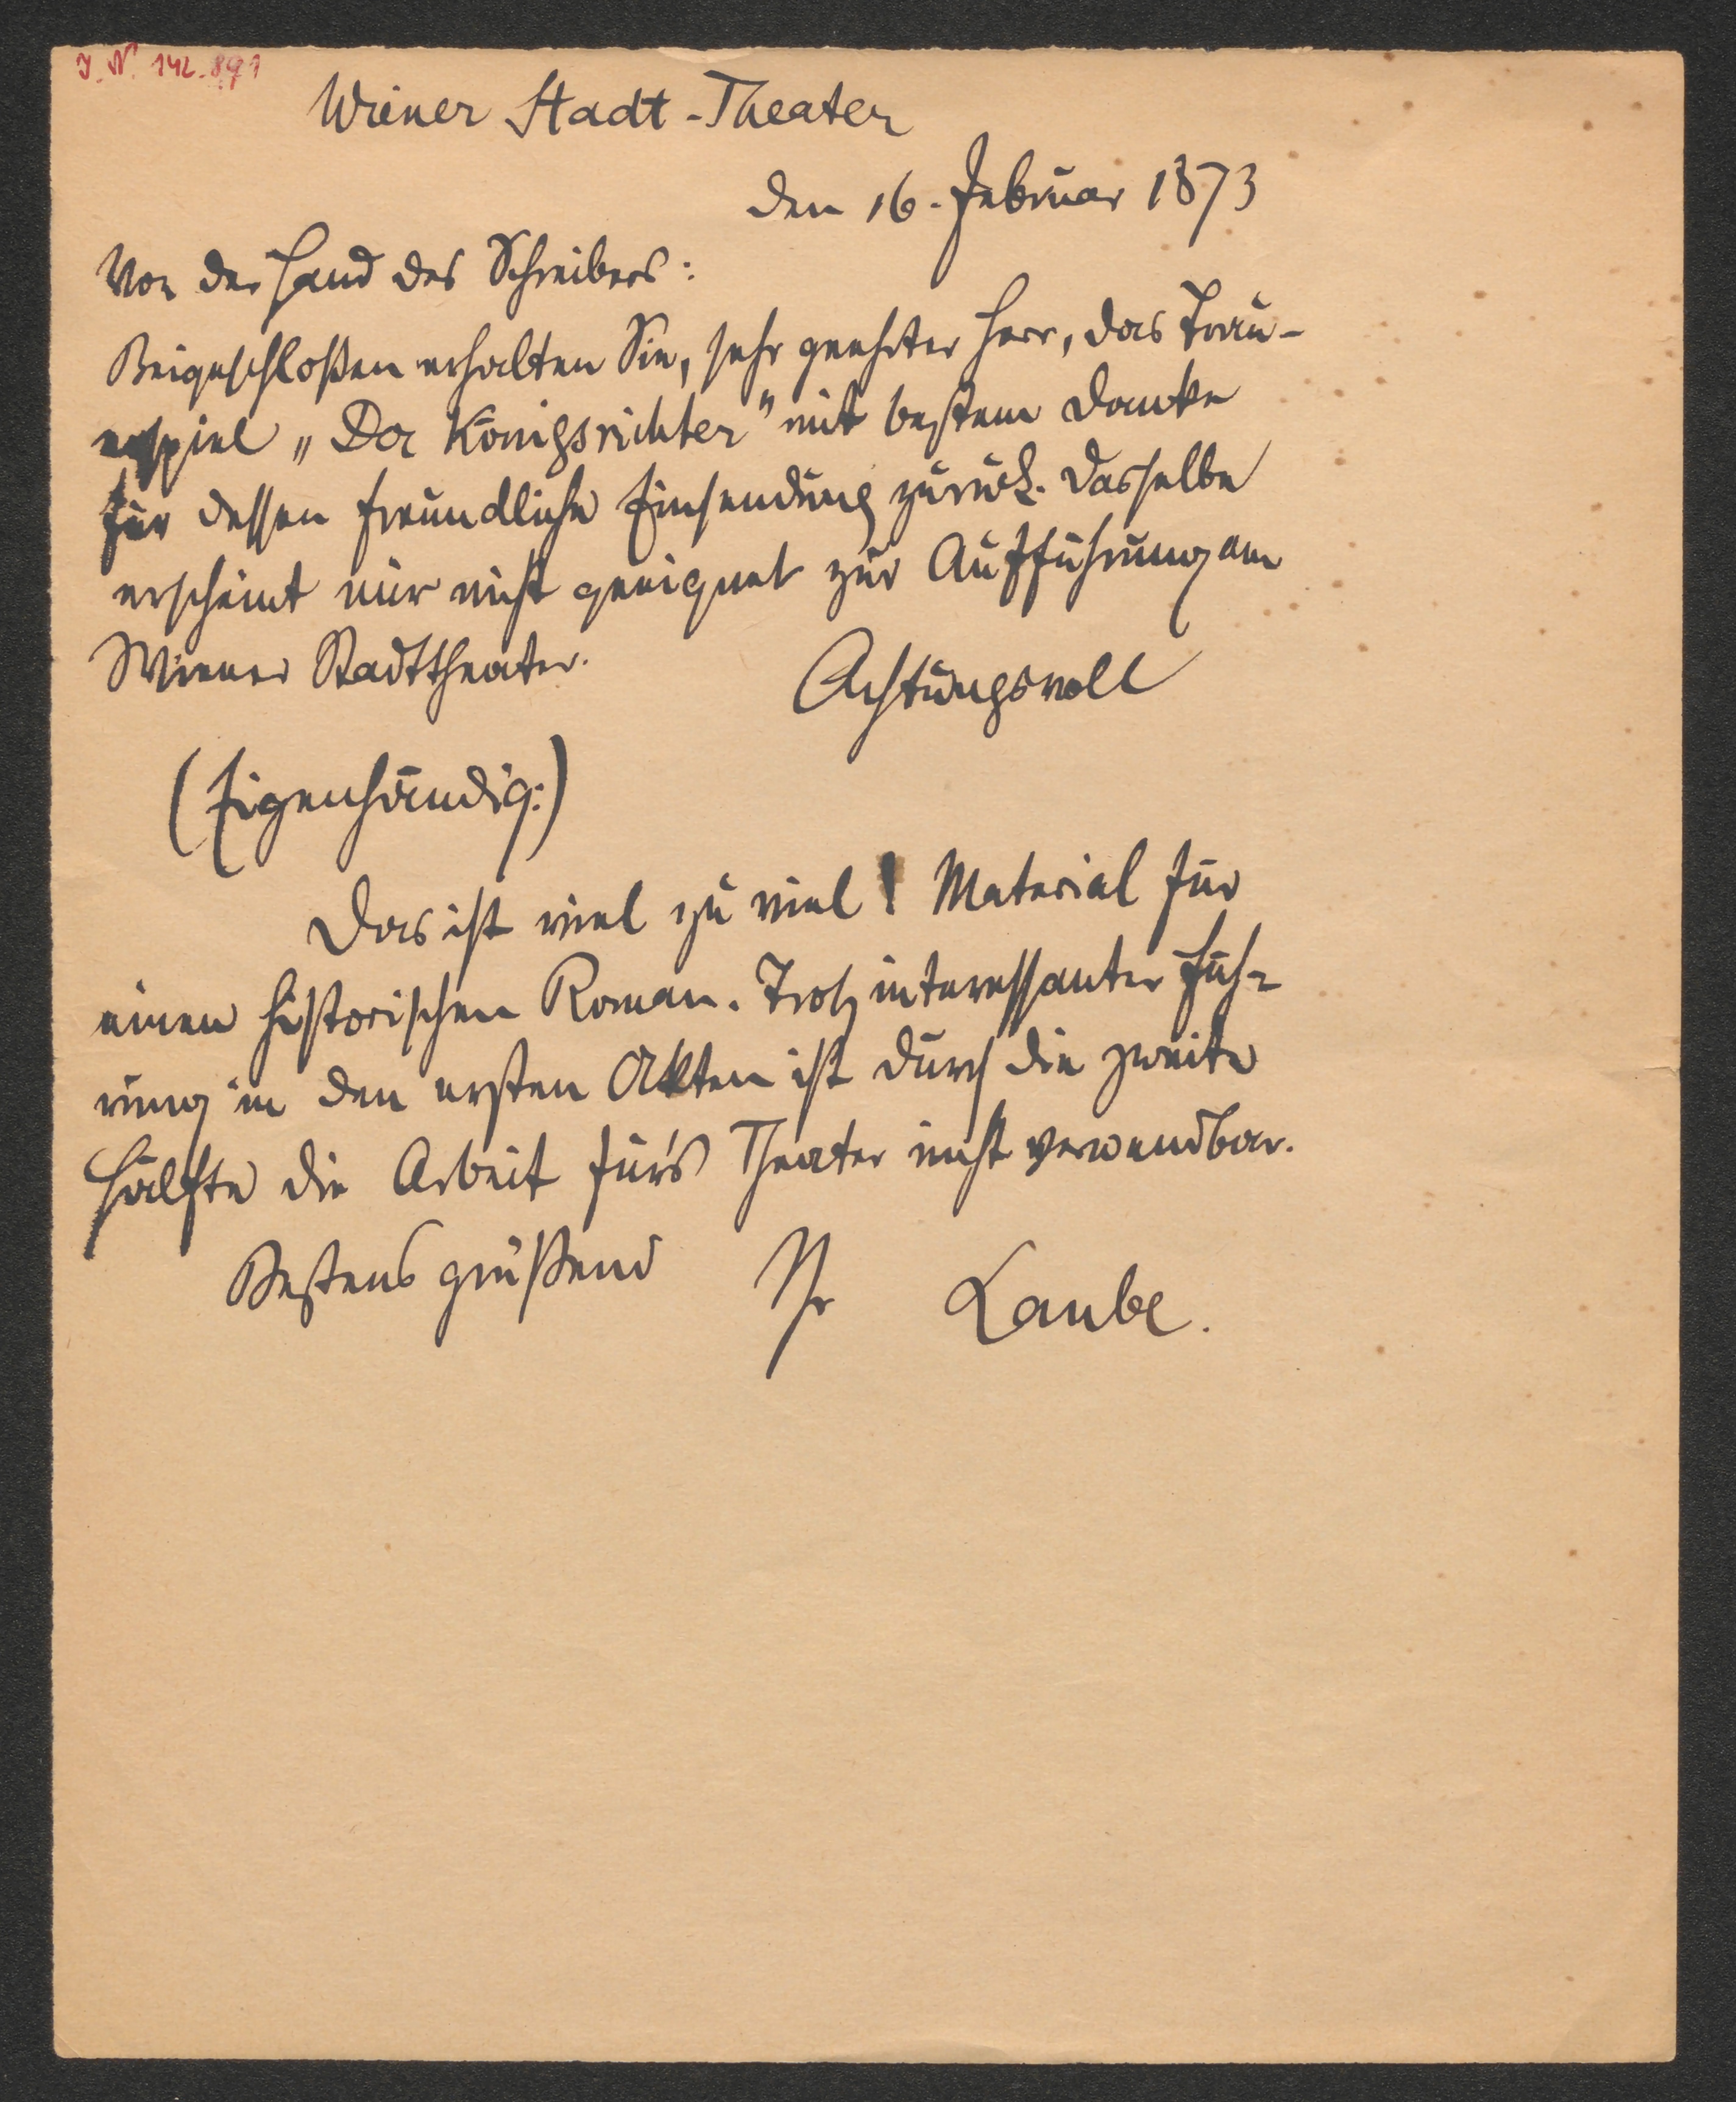 J. N. 142.891
Wiener Stadt-Theater
den 16. Februar 1873
Von der Hand des Schreibers:
Beigeschloßen erhalten Sie, sehr geehrter Herr, das Trau-
erspiel „Der Königsrichter" mit bestem Danke
für dessen freundliche Einsendung zurück. Dasselbe
erscheint mir nicht geeignet zur Aufführung am
Wiener Stadttheater.
Achtungsvoll
(Eigenhändig:)
Das ist viel zu viel! Material für
einen historischen Roman. Trotz interessanter Füh-
rung in den ersten Akten ist durch die zweite
Hälfte die Arbeit für's Theater nicht verwendbar.
Bestens grüßend Ihr Laube.